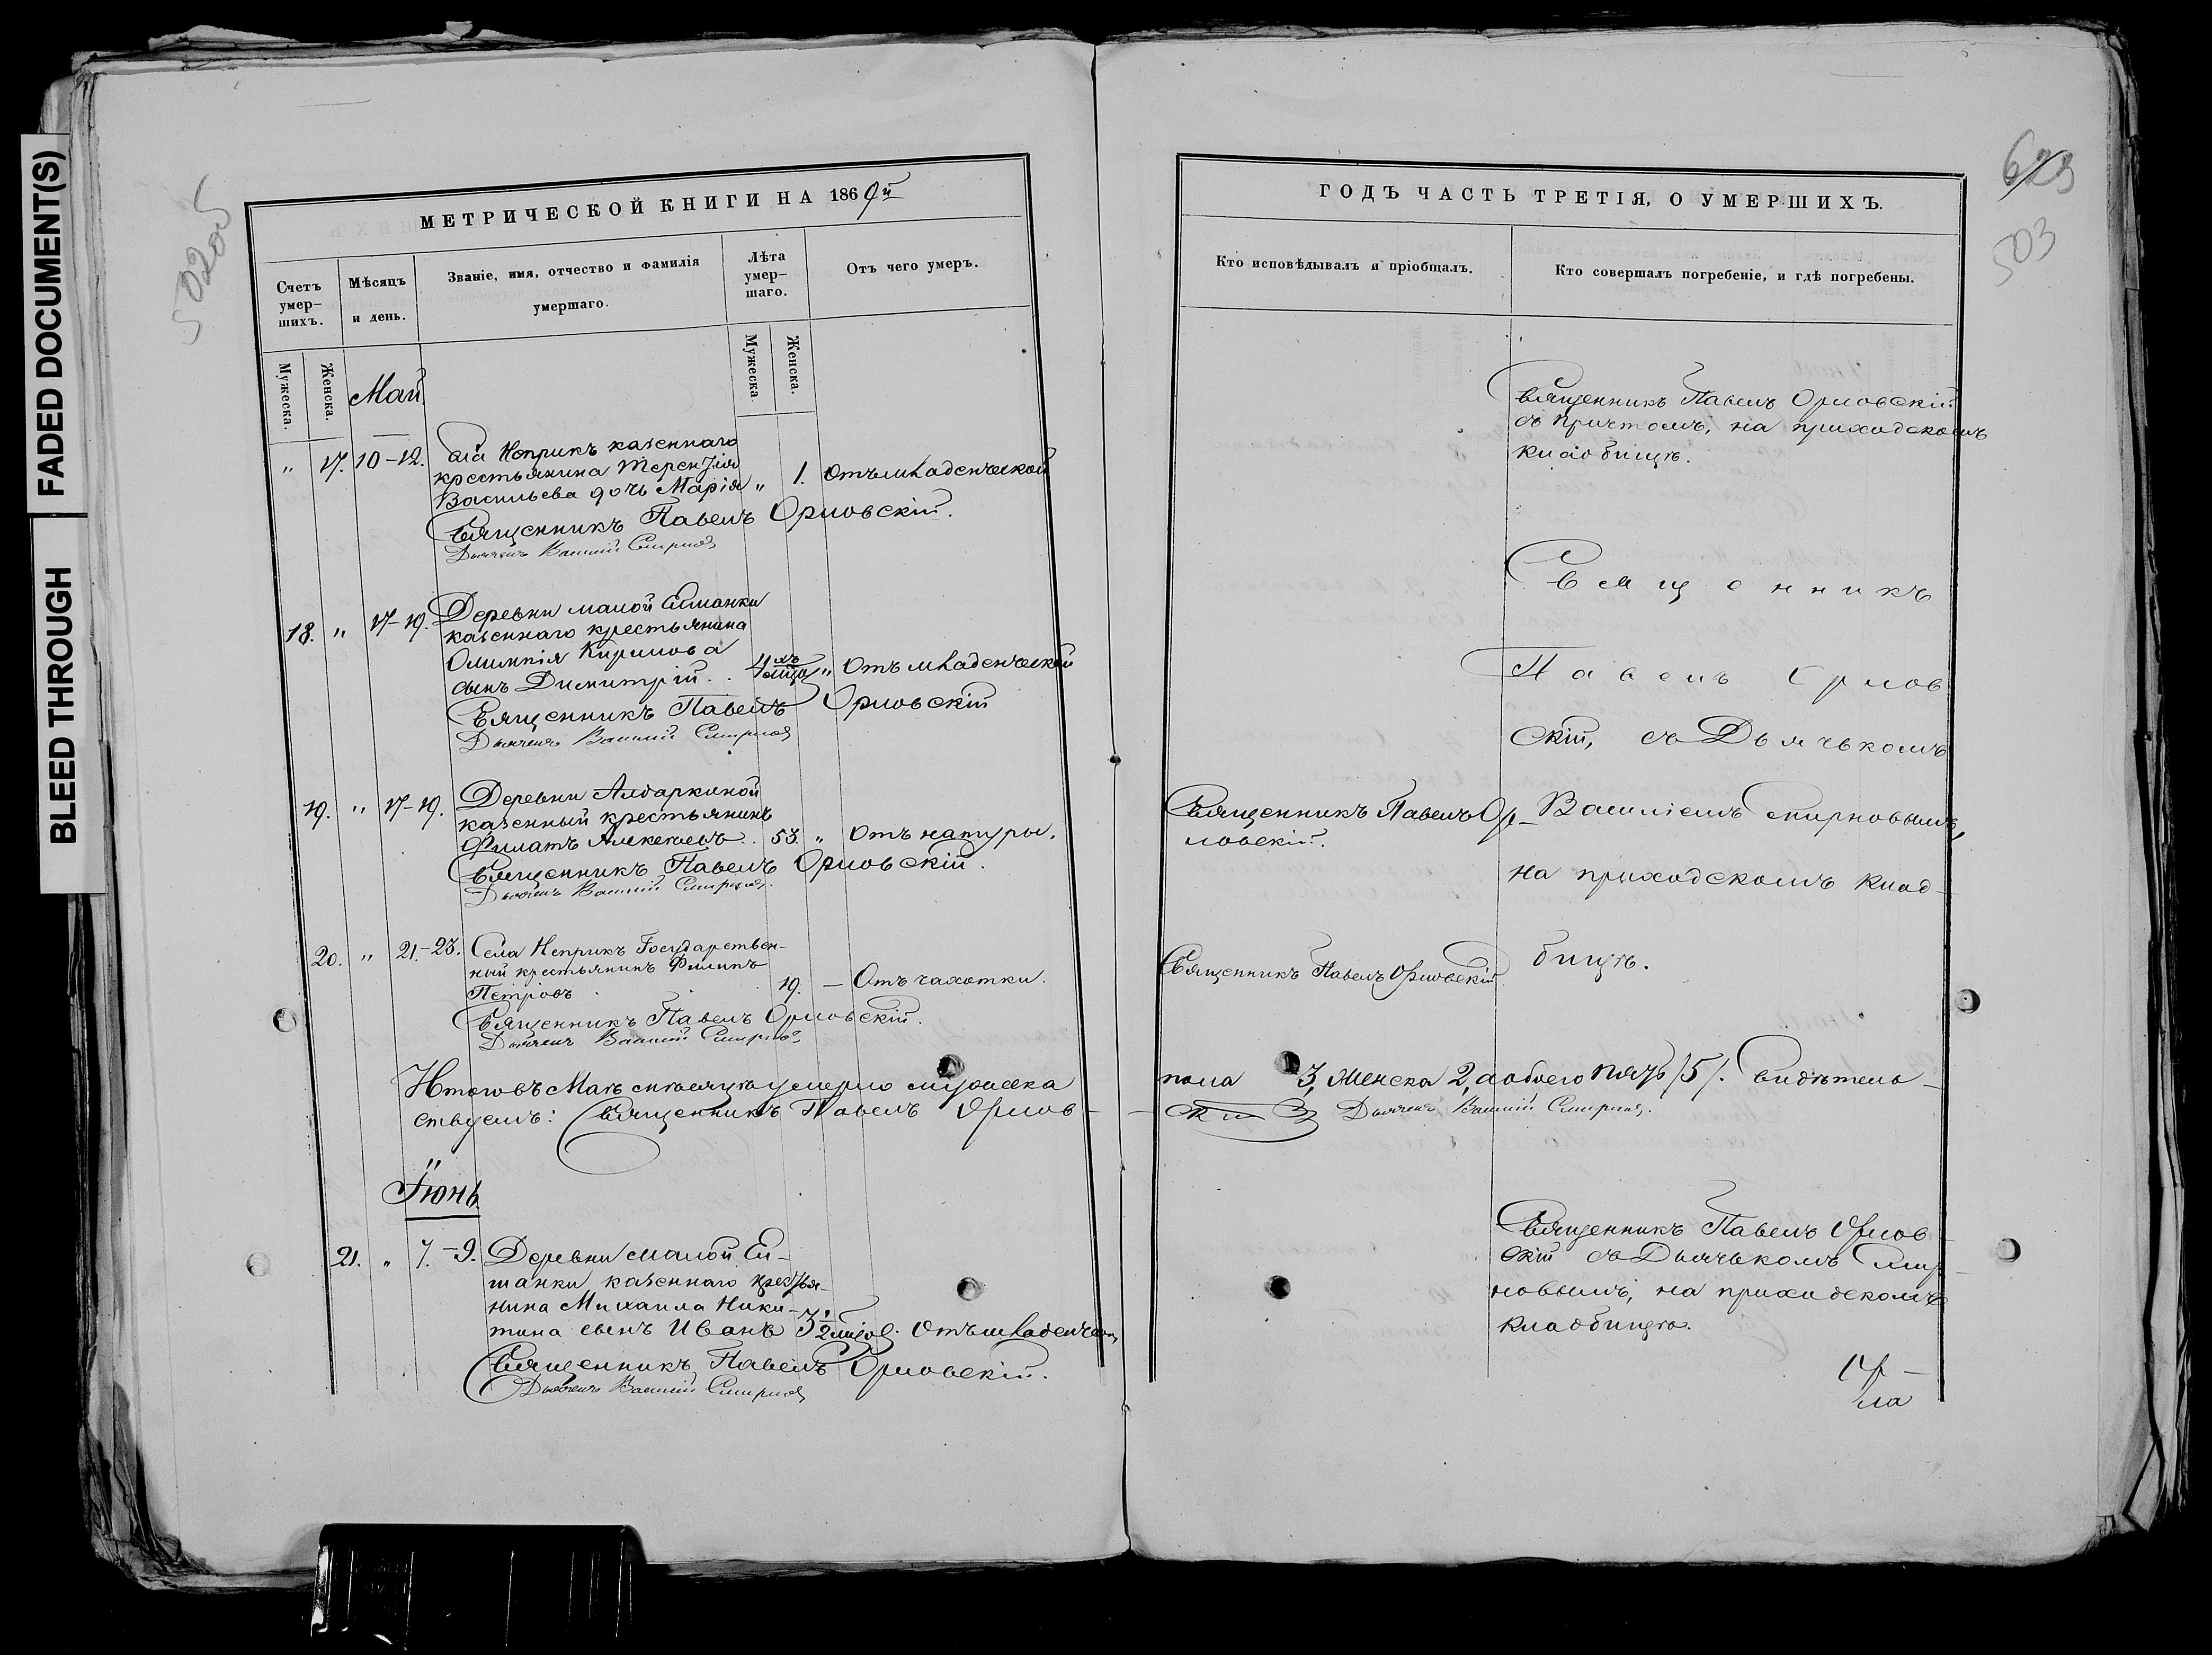 FADED DOCUMENT(S)
BLEED THROUGH
502об
МЕТРИЧЕСКОЙ КНИГИ НА 1869й
Счетъ умер-шихъ.
Мѣсяцъ и день.
Званіе, имя, отчество и фамилія умершаго.
Лѣта умер-шаго.
Отъ чего умеръ.
Мужеска.
Женска.
Мужеска.
Женска.
Май.
" 17. 10-12. Села Неприкъ казеннаго
крестьянина Терентія
Васильева дочь Марія " 1. Отъ младенческой
Священникъ Павелъ Орловскій.
Дьячекъ Василій Смирновъ
18. " 17-19. Деревни малой Елшанки
казеннаго крестьянина
Олимпія Кирилова
сынъ Димитрій. 4 " Отъ младенческой
Священникъ Павелъ Орловскій
Дьячекъ Василій Смирновъ
19. " 17-19. Деревни Алдаркиной
казенный крестьянинъ
Филатъ Алексѣевъ. 53. " Отъ натуры.
Священникъ Павелъ Орловскій.
Дьячекъ Василій Смирновъ.
20. " 21-23. Села Неприкъ Государствен-
ный крестьянинъ Филипъ
Петровъ 19. — Отъ чахотки.
Священникъ Павелъ Орловскій.
Дьячекъ Василій Смирновъ
Итого въ Маѣ мѣсяцѣ умерло мужеска
ствуемъ: Священникъ Павелъ Орлов-
Іюнь.
21. " 7.-9. Деревни малой Ел-
шанки казеннаго крестья-
нина Михаила Ники-
тина сынъ Иванъ 3 1/2 Отъ младенческой
Священникъ Павелъ Орловскій.
Дьячекъ Василій Смирновъ
ГОДЪ ЧАСТЬ ТРЕТІЯ, О УМЕРШИХЪ.
503
Кто исповѣдывалъ и пріобщалъ.
Кто совершалъ погребеніе, и гдѣ погребены.
Священникъ Павелъ Орловскій
съ причтомъ, на приходскомъ
кладбищѣ.
Священникъ
Павелъ Орлов
скій, съ Дьячькомъ
Священникъ Павелъ Ор-
ловскій.
Василіемъ Смирновымъ,
на приходскомъ клад-
Священникъ Павелъ Орловскій
бищѣ.
пола 3, женска 2, а обоего пять /5/. Свидѣтель-
скій Дьячекъ Василій Смирновъ.
Священникъ Павелъ Орлов
скій съ Дьячькомъ Смир-
новымъ, на приходскомъ
кладбищѣ.